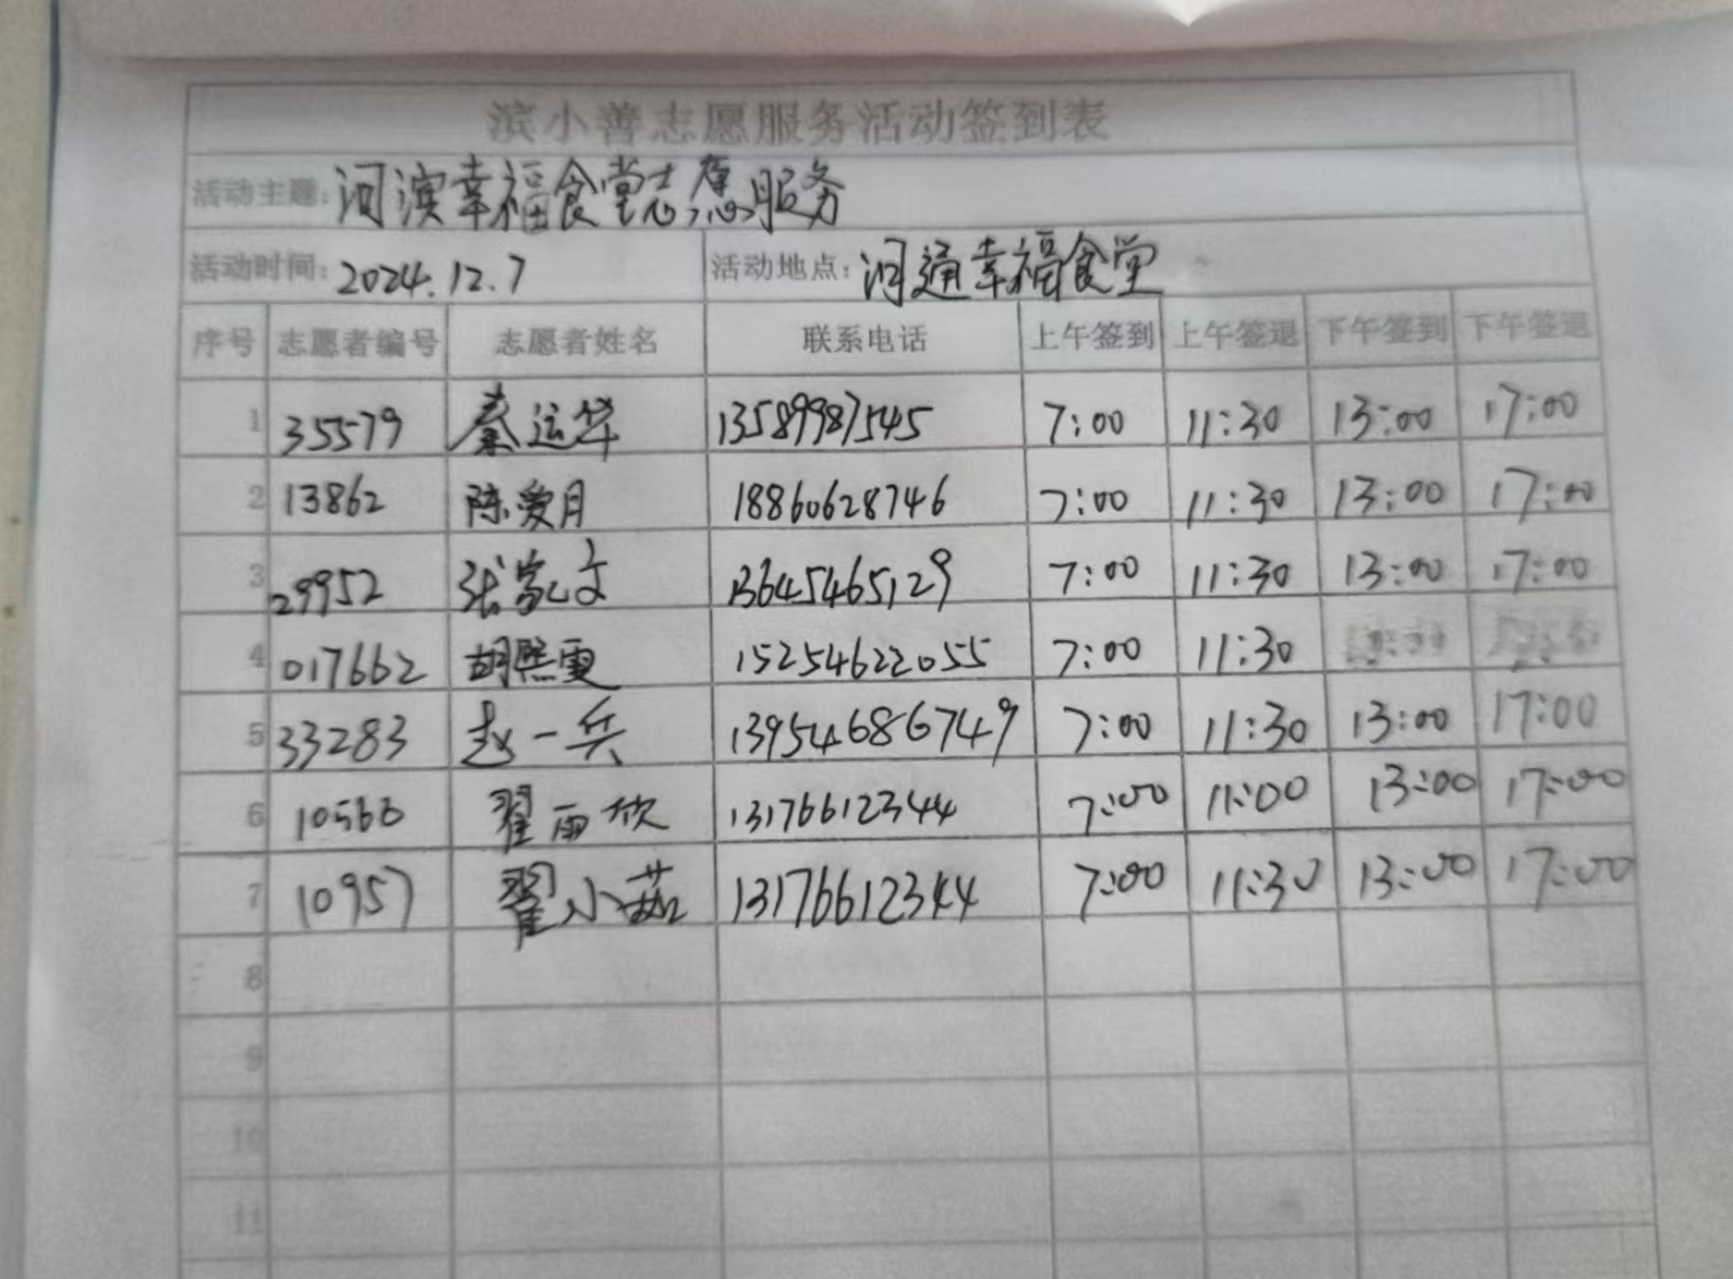 滨小善志愿服务活动签到表
活动主题: 河滨幸福食堂志愿服务
活动时间: 2024.12.7 活动地点: 河通幸福食堂
序号 志愿者编号 志愿者姓名 联系电话 上午签到 上午签退 下午签到 下午签退
1 35579 秦运华 13589987545 7:00 11:30 13:00 17:00
2 13862 陈爱月 18860628746 7:00 11:30 13:00 17:00
3 29952 张凯文 13645465129 7:00 11:30 13:00 17:00
4 017662 胡熙雯 15254622055 7:00 11:30
5 33283 赵一兵 13954686749 7:00 11:30 13:00 17:00
6 10566 翟雨欣 13176612344 7:00 11:00 13:00 17:00
7 10957 翟小茹 13176612344 7:00 11:30 13:00 17:00
8
9
10
11